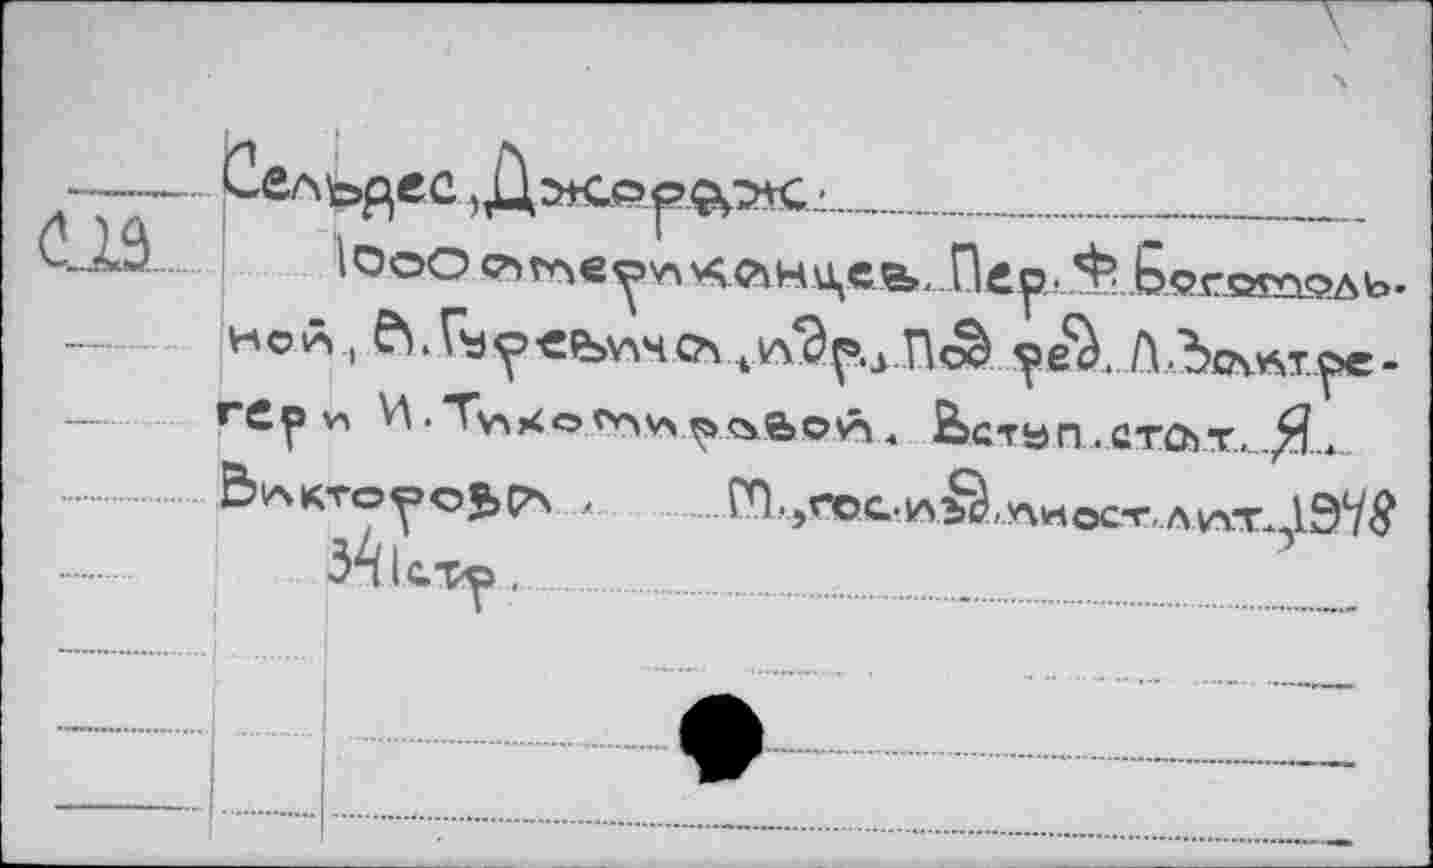 Сельдес, Джордж.
1000 американцев. Пер. Ф. Боготоль-
ной, А. Гуревича, и др., Под ред. Л. Вайктре-
гер и И. Тихомировой. Вступ. стат. Я.
Викторова, М., гос. изд. иност. лит., 1948
341 стр.